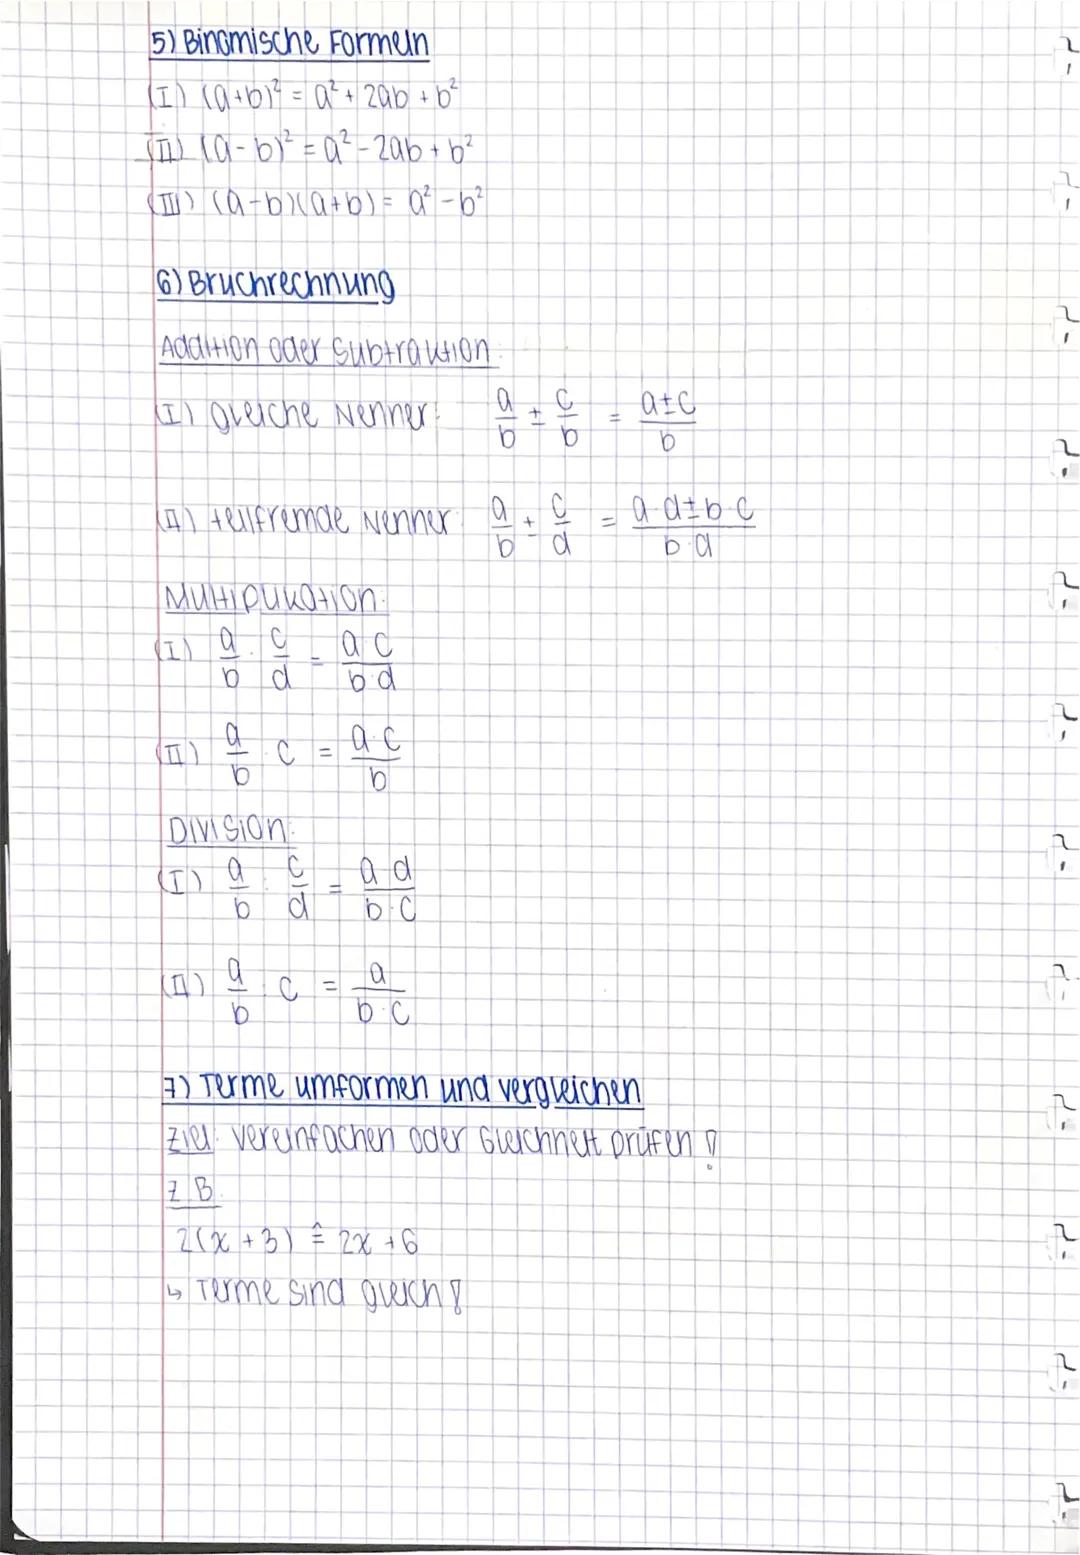 5) Binomische Formeln
(I) (a+b)² = a² + 2ab + b²
(II) (a-b)² = a² - 2ab + b²
(III) (a-b)(a+b) = a² - b²
6) Bruchrechnung
Addition oder Subtraktion:
(I) gleiche Nenner: a/b ± c/b = a±c/b
(II) teilfremde Nenner: a/b ± c/d = a·d±b·c/b·d
Multiplikation:
(I) a/b · c/d = a·c/b·d
(II) a/b · c = a·c/b
Division:
(I) a/b : c/d = a·d/b·c
(II) a/b : c = a/b·c
7) Terme umformen und vergleichen
Ziel: Vereinfachen oder Gleichheit prüfen!
z.B.
2(x+3) ≙ 2x+6
↳ Terme sind gleich!